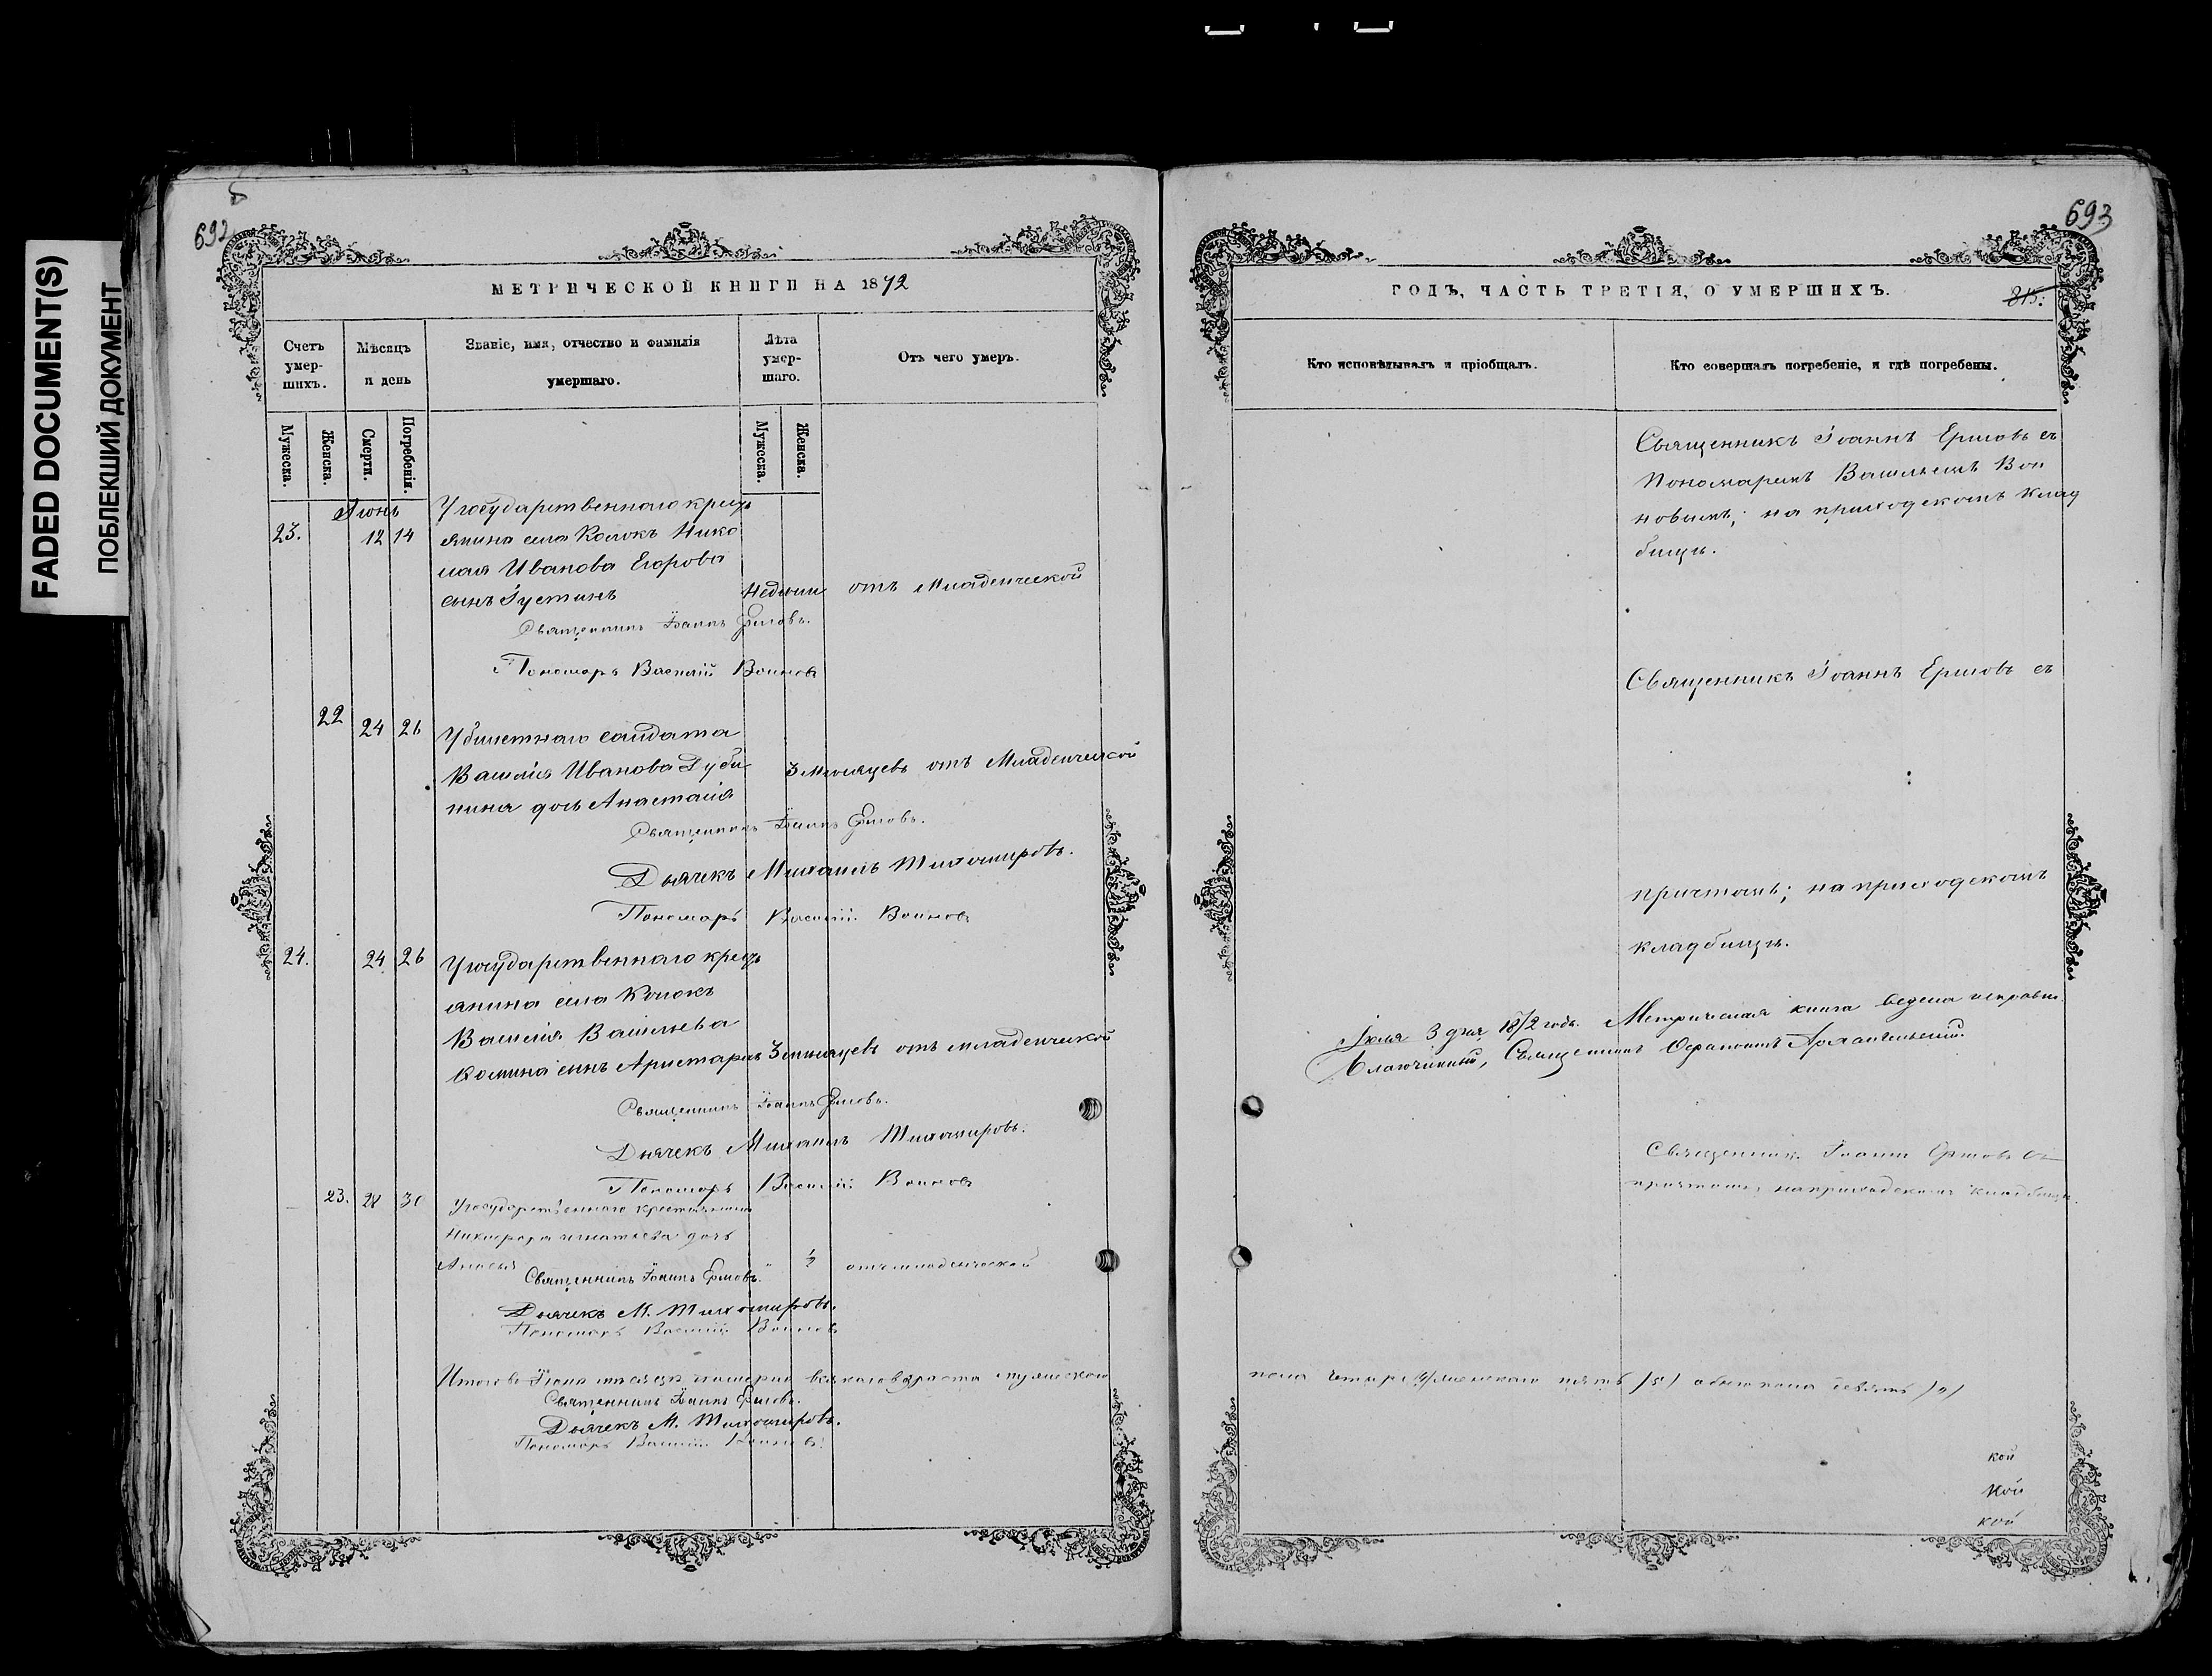 FADED DOCUMENT(S)
ПОБЛЕКШИЙ ДОКУМЕНТ
692
МЕТРИЧЕСКОЙ КНИГИ НА 1872
Счетъ умер-шихъ.
Мѣсяцъ и день
Званіе, имя, отчество и фамилія умершаго.
Лѣта умер-шаго.
Отъ чего умеръ.
Мужеска.
Женска.
Смерти.
Погребенія.
Мужеска.
Женска.
Іюнь
23. 12 14
У государственнаго кресть
янина села Колокъ Нико
лая Иванова Егорова
сынъ Іустинъ Недѣли отъ младенческой
Священникъ Іоаннъ Ершовъ.
Пономарь Василій Воиновъ
22 24 26
У билетнаго солдата
Василія Иванова Дуби
нина дочь Анастасія 3 мѣсяцевъ отъ младенческой
Священникъ Іоаннъ Ершовъ.
Дьячекъ Михаилъ Тихомировъ.
Пономарь Василій Воиновъ
24. 24 26
У государственнаго кресть
янина села Колокъ
Василія Васильева
сынъ Аристархъ 3 мѣсяцевъ отъ младенческой
Священникъ Іоаннъ Ершовъ.
Дьячекъ Михаилъ Тихомировъ.
Пономарь Василій Воиновъ
23. 28 30
У государственнаго крестьянина
Никифора Игнатьева дочь
отъ младенческой
Священникъ Іоаннъ Ершовъ.
Дьячекъ М. Тихомировъ.
Пономарь Василій Воиновъ
Итого въ Іюнѣ мѣсяцѣ померло всякаго возраста мужескаго
Священникъ Іоаннъ Ершовъ.
Дьячекъ М. Тихомировъ.
Пономарь Василій Воиновъ
693
ГОДЪ, ЧАСТЬ ТРЕТІЯ, О УМЕРШИХЪ.
815:
Кто исповѣдывалъ и пріобщалъ.
Кто совершалъ погребеніе, и гдѣ погребены.
Священникъ Іоаннъ Ершовъ съ
Пономаремъ Васильемъ Вои
новымъ; на приходскомъ клад
бищѣ.
Священникъ Іоаннъ Ершовъ съ
причтомъ; на приходскомъ
кладбищѣ.
Іюля 3 дня 1872 года. Метрическая книга ведена исправно.
Благочинный, Священникъ Архангельскій.
Священникъ Іоаннъ Ершовъ съ
причтомъ, на приходскомъ кладбищѣ.
пола четыре /4/ женскаго пять /5/ обоего пола девять /9/
кой
кой
кой